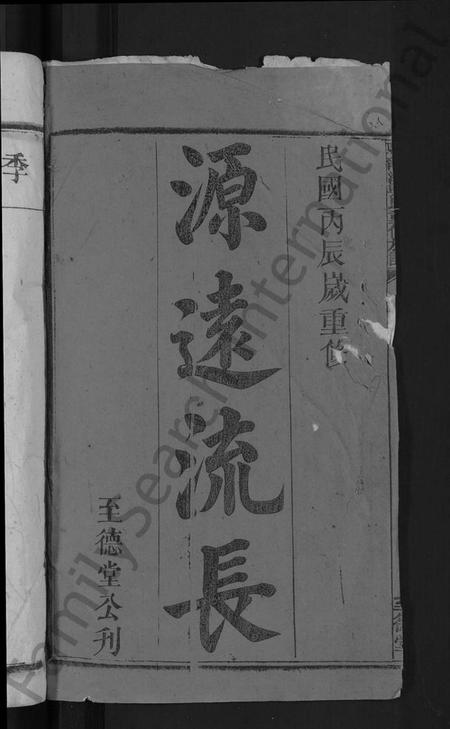 民國丙辰歲重修
源遠流長
至德堂公刊
季
FamilySearch International